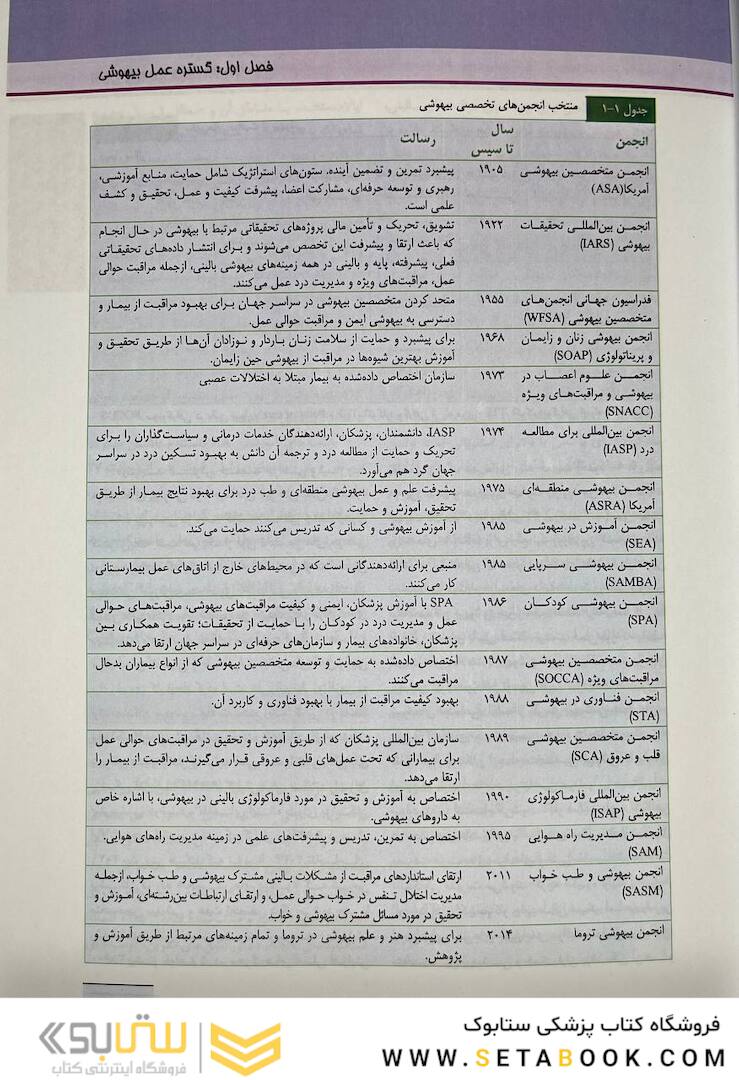 فصل اول: گستره عمل بیهوشی
جدول ۱-۱ منتخب انجمن‌های تخصصی بیهوشی
انجمن سال تاسیس رسالت
انجمن متخصصین بیهوشی آمریکا(ASA) ۱۹۰۵ پیشبرد تمرین و تضمین آینده. ستون‌های استراتژیک شامل حمایت، منابع آموزشی،
رهبری و توسعه حرفه‌ای، مشارکت اعضا، پیشرفت کیفیت و عمل، تحقیق و کشف
علمی است.
انجمن بین‌المللی تحقیقات بیهوشی (IARS) ۱۹۲۲ تشویق، تحریک و تأمین مالی پروژه‌های تحقیقاتی مرتبط با بیهوشی در حال انجام
که باعث ارتقا و پیشرفت این تخصص می‌شوند و برای انتشار داده‌های تحقیقاتی
فعلی، پیشرفته، پایه و بالینی در همه زمینه‌های بیهوشی بالینی، ازجمله مراقبت حوالی
عمل، مراقبت‌های ویژه و مدیریت درد عمل می‌کنند.
فدراسیون جهانی انجمن‌های متخصصین بیهوشی (WFSA) ۱۹۵۵ متحد کردن متخصصین بیهوشی در سراسر جهان برای بهبود مراقبت از بیمار و
دسترسی به بیهوشی ایمن و مراقبت حوالی عمل.
انجمن بیهوشی زنان و زایمان و پریناتولوژی (SOAP) ۱۹۶۸ برای پیشبرد و حمایت از سلامت زنان باردار و نوزادان آن‌ها از طریق تحقیق و
آموزش بهترین شیوه‌ها در مراقبت از بیهوشی حین زایمان.
انجمن علوم اعصاب در بیهوشی و مراقبت‌های ویژه (SNACC) ۱۹۷۳ سازمان اختصاص داده‌شده به بیمار مبتلا به اختلالات عصبی
انجمن بین‌المللی برای مطالعه درد (IASP) ۱۹۷۴ IASP، دانشمندان، پزشکان، ارائه‌دهندگان خدمات درمانی و سیاست‌گذاران را برای
تحریک و حمایت از مطالعه درد و ترجمه آن دانش به بهبود تسکین درد در سراسر
جهان گرد هم می‌آورد.
انجمن بیهوشی منطقه‌ای آمریکا (ASRA) ۱۹۷۵ پیشرفت علم و عمل بیهوشی منطقه‌ای و طب درد برای بهبود نتایج بیمار از طریق
تحقیق، آموزش و حمایت.
انجمن آموزش در بیهوشی (SEA) ۱۹۸۵ از آموزش بیهوشی و کسانی که تدریس می‌کنند حمایت می‌کند.
انجمن بیهوشی سرپایی (SAMBA) ۱۹۸۵ منبعی برای ارائه‌دهندگانی است که در محیط‌های خارج از اتاق‌های عمل بیمارستانی
کار می‌کنند.
انجمن بیهوشی کودکان (SPA) ۱۹۸۶ SPA با آموزش پزشکان، ایمنی و کیفیت مراقبت‌های بیهوشی، مراقبت‌های حوالی
عمل و مدیریت درد در کودکان را با حمایت از تحقیقات؛ تقویت همکاری بین
پزشکان، خانواده‌های بیمار و سازمان‌های حرفه‌ای در سراسر جهان ارتقا می‌دهد.
انجمن متخصصین بیهوشی مراقبت‌های ویژه (SOCCA) ۱۹۸۷ اختصاص داده‌شده به حمایت و توسعه متخصصین بیهوشی که از انواع بیماران بدحال
مراقبت می‌کنند.
انجمن فناوری در بیهوشی (STA) ۱۹۸۸ بهبود کیفیت مراقبت از بیمار با بهبود فناوری و کاربرد آن.
انجمن متخصصین بیهوشی قلب و عروق (SCA) ۱۹۸۹ سازمان بین‌المللی پزشکان که از طریق آموزش و تحقیق در مراقبت‌های حوالی عمل
برای بیمارانی که تحت عمل‌های قلبی و عروقی قرار می‌گیرند، مراقبت از بیمار را
ارتقا می‌دهد.
انجمن بین‌المللی فارماکولوژی بیهوشی (ISAP) ۱۹۹۰ اختصاص به آموزش و تحقیق در مورد فارماکولوژی بالینی در بیهوشی، با اشاره خاص
به داروهای بیهوشی.
انجمن مدیریت راه هوایی (SAM) ۱۹۹۵ اختصاص به تمرین، تدریس و پیشرفت‌های علمی در زمینه مدیریت راه‌های هوایی.
انجمن بیهوشی و طب خواب (SASM) ۲۰۱۱ ارتقای استانداردهای مراقبت از مشکلات بالینی مشترک بیهوشی و طب خواب، ازجمله
مدیریت اختلال تنفس در خواب حوالی عمل، و ارتقای ارتباطات بین‌رشته‌ای، آموزش و
تحقیق در مورد مسائل مشترک بیهوشی و خواب.
انجمن بیهوشی تروما ۲۰۱۴ برای پیشبرد هنر و علم بیهوشی در تروما و تمام زمینه‌های مرتبط از طریق آموزش و
پژوهش.
فروشگاه کتاب پزشکی ستابوک
WWW.SETABOOK.COM
ستابوک
فروشگاه اینترنتی کتاب